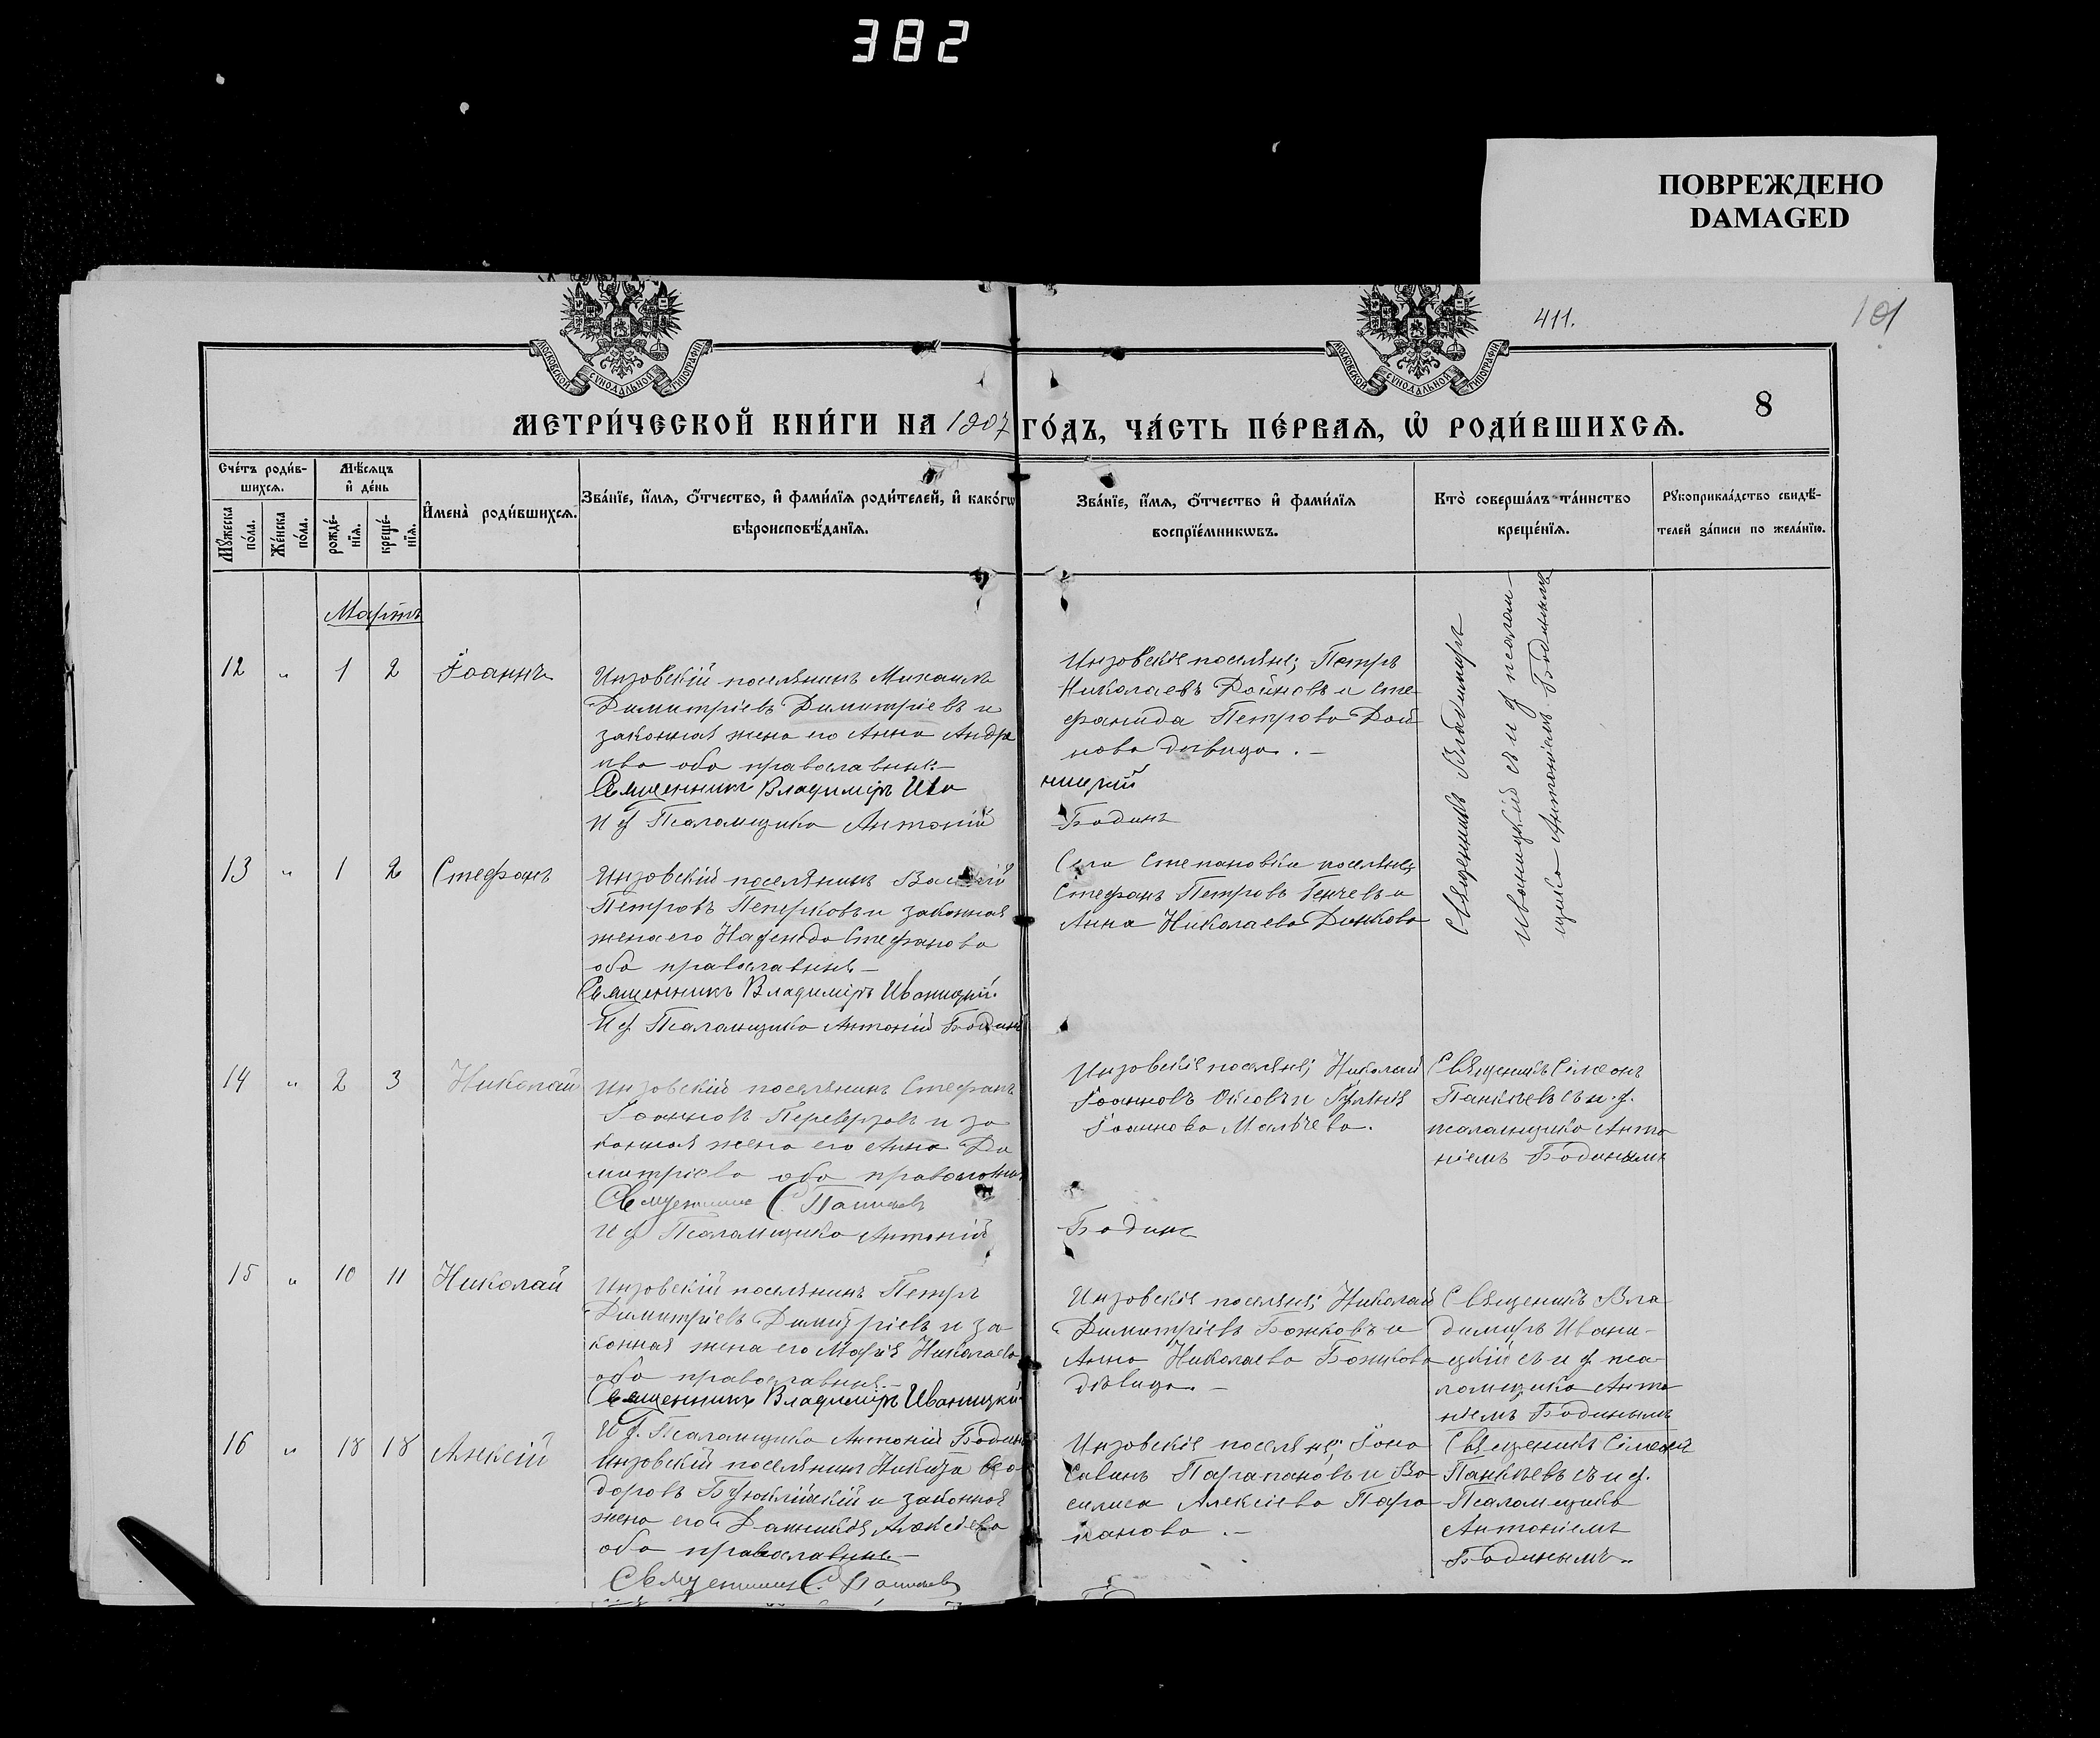 382
ПОВРЕЖДЕНО
DAMAGED
411.
101
МОСКОВСКОЙ СУНОДАЛЬНОЙ ТИПОГРАФІИ
МОСКОВСКОЙ СУНОДАЛЬНОЙ ТИПОГРАФІИ
8
МЕТРИ́ЧЕСКОЙ КНИ́ГИ НА 1907 ГО́ДЪ, ЧА́СТЬ ПЕ́РВАѦ, Ѽ РОДИ́ВШИХСѦ.
Сче́тъ роди́в-
шихсѧ.
Мꙋ́жеска по́ла.
Же́нска по́ла.
Мѣ́сѧцъ
и҆ де́нь
рожде́-
нїѧ.
креще́-
нїѧ.
И҆мена̀ роди́вшихсѧ.
Зва́нїе, и҆́мѧ, ѻ҆́тчество, и҆ фами́лїѧ роди́телей, и҆ како́гѡ
вѣроисповѣ́данїѧ.
Зва́нїе, и҆́мѧ, ѻ҆́тчество и҆ фами́лїѧ
воспрїе́мникѡвъ.
Кто̀ соверша́лъ та́инство
креще́нїѧ.
Рꙋкоприкла́дство свидѣ́-
телей за́писи по жела́нїю.
Мартъ
12 " 1 2 Іоаннъ
Инзовскій поселянинъ Михаилъ
Димитріевъ Димитріевъ и
законная жена его Анна Андре
ева оба православные.
Священникъ Владиміръ Ива
И ф Псаломщика Антоній
Инзовскіе поселяне; Петръ
Николаевъ Дойновъ и Сте
фанида Петрова Дой
нова девица. –
ницкій
Бодинъ
Священникъ Владиміръ
Иваницкій съ и ф псалом-
щика Антоніемъ Бодинымъ
13 " 1 2 Стефанъ
Инзовскій поселянинъ Василій
Петровъ Пеперковъ и законная
жена его Надежда Стефанова
оба православные –
Священникъ Владиміръ Иваницкій.
И ф. Псаломщика Антоній Бодинъ
Села Степановки поселяне
Стефанъ Петровъ Генчевъ и
Анна Николаева Динкова
14 " 2 3 Николай
Инзовскій поселянинъ Стефанъ
Іоанновъ Перверзовъ и за
конная жена его Анна Ди
митріева оба православны
Священникъ С. Панкѣевъ
И ф Псаломщика Антоній
Инзовскіе поселяне; Николай
Іоанновъ и
Іоаннова Малчева.
Бодинъ
Священникъ Сімеонъ
Панкѣевъ съ и. ф.
псаломщика Анто
ніемъ Бодинымъ
15 " 10 11 Николай
Инзовскій поселянинъ Петръ
Димитріевъ Димитріевъ и за-
конная жена его Марія Николаева
оба православные. –
Священникъ Владиміръ Иваницкій
И ф. Псаломщика Антоній Бодинъ
Инзовскіе поселяне; Николай
Димитріевъ Божковъ и
Анна Николаева Божкова
дѣвица. –
Священникъ Вла
димиръ Ивани-
цкій съ и ф. пса-
ломщика Анто
ніемъ Бодинымъ
16 " 18 18 Алексій
Инзовскій поселянинъ Никита Ѳео-
доровъ Буюклійскій и законная
жена его Домникія Алексіева
оба православные. –
Священникъ С. Панкѣевъ
Инзовскіе поселяне; Іона
Савинъ Парапановъ и Ва
силиса Алексіева Пара
панова. –
Священникъ Сімеонъ
Панкѣевъ съ и ф.
Псаломщика
Антоніемъ
Бодинымъ..